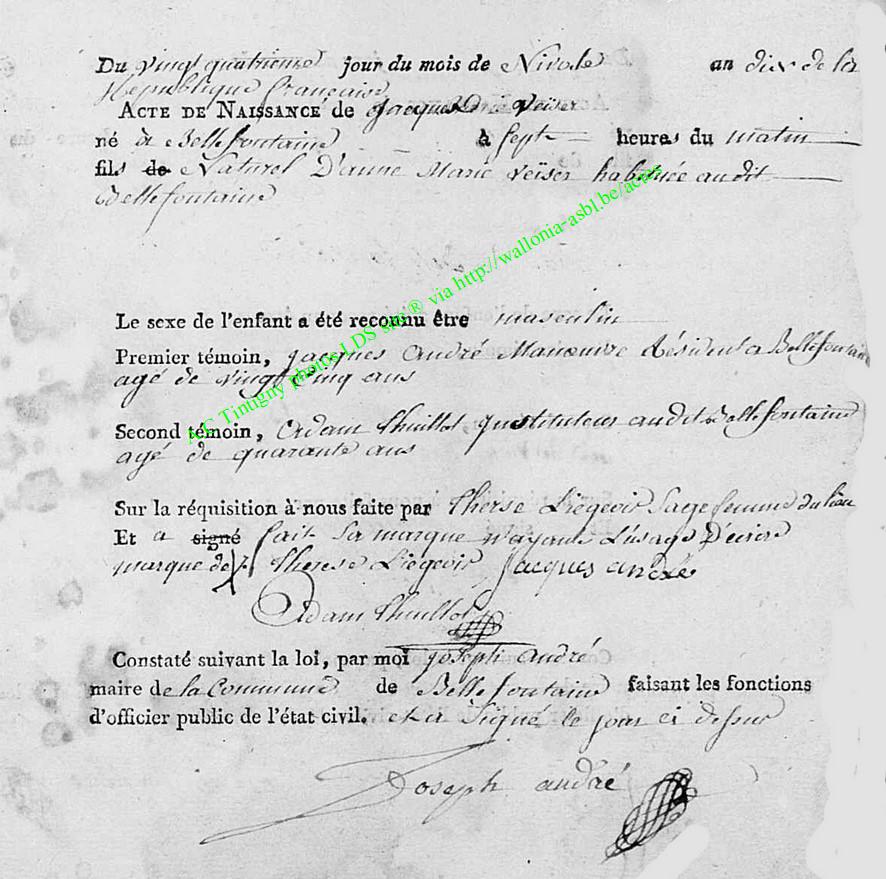 Du vingt quatrieme jour du mois de Nivose an dix de la
République française
ACTE DE NAISSANCE de Jacques veiser
né à Bellefontaine à Sept heures du matin
fils de Naturel D'anne Marie veïser habituée audit
Bellefontaine
Le sexe de l'enfant a été reconnu être masculin
Premier témoin, Jacques andré Manœuvre Résident a Bellefontaine
agé de vingt Cinq ans
Second témoin, Adam thuillot Instituteur audit Bellefontaine
agé de quarante ans
Sur la réquisition à nous faite par therese Liegeois Sage femme du lieu
Et a signé fait Sa marque n'ayant L'usage D'ecrire
marque de therese Liegeois Jacques andré
Adam thuillot
Constaté suivant la loi, par moi Joseph andré
maire de la Commune de Bellefontaine faisant les fonctions
d'officier public de l'état civil. et a Signé le jour ci dessus
Joseph andré
AC Tintigny photos LDS via http://wallonia-asbl.be/actes